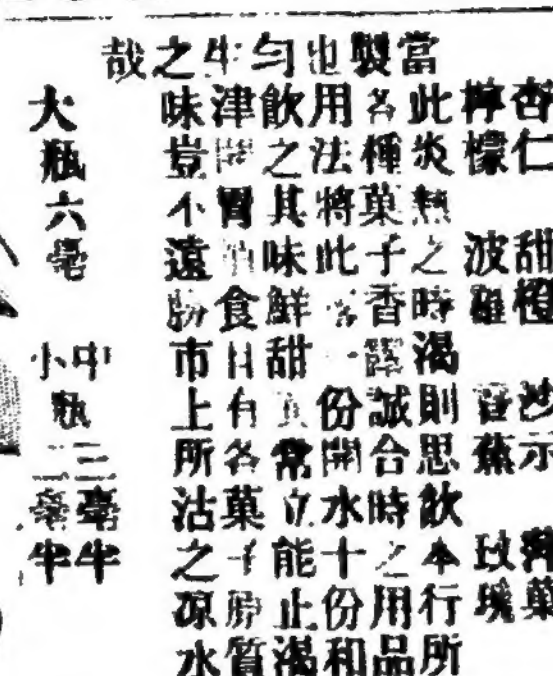 杏仁　甜橙　沙示　蘋菓
檸檬　波羅　香蕉　玫瑰
當此炎熱之時渴則思飲本行所
製各種菓子香露誠合時之用品
也用法將此露一份開水十份和
勻飲之其味鮮甜異常立能止渴
生津開胃消食且有各菓子質
之味豈不遠勝市上所沽之凉水
哉
大瓶六毫　中瓶三毫半
小　二毫半